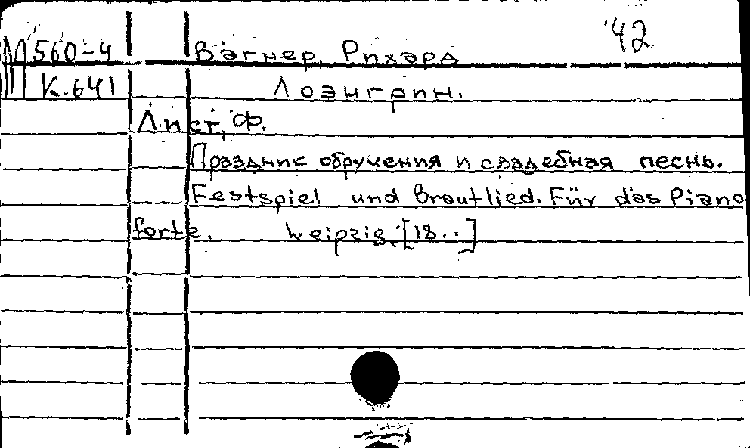 '42
М560-4 Вагнер, Рихард
К.641 Лоэнгрин.
Лист, Ф.
Праздник обручения и свадебная песнь.
Festspiel und Brautlied. Für das Piano
forte. Leipzig, [18..]